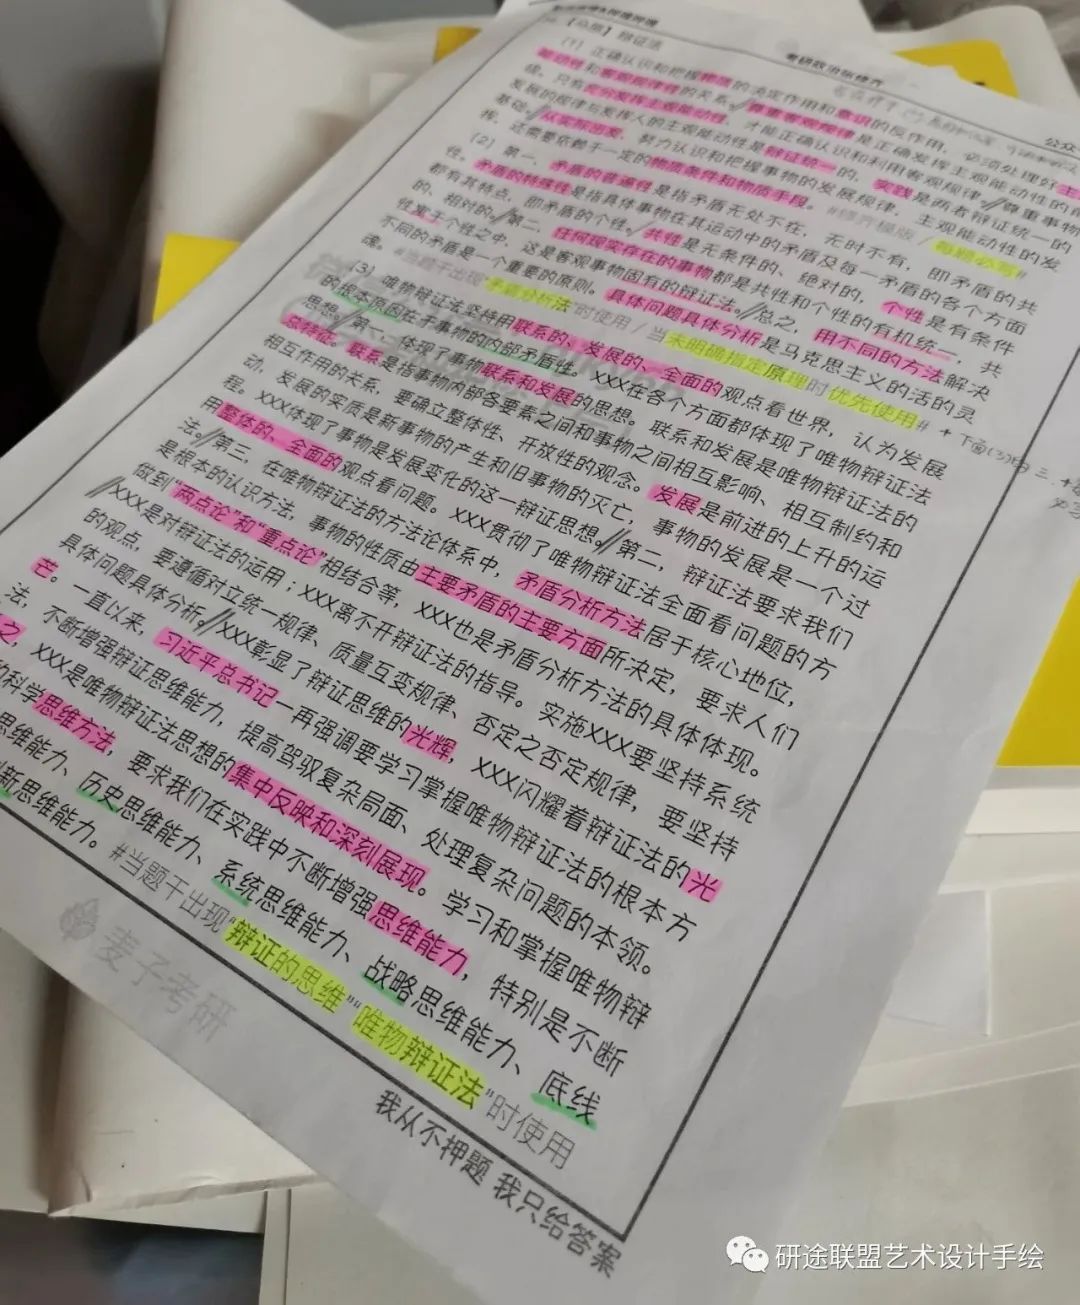 辩证法
(1) 正确认识和把握物质的决定作用和意识的反作用，必须处理好主
能动性和客观规律性的关系。//尊重客观规律是正确发挥主观能动性的前
提。只有充分发挥主观能动性，才能正确认识和利用客观规律。//尊重事物
发展的规律与发挥人的主观能动性是辩证统一的，实践是两者辩证统一的
基础。//从实际出发，努力认识和把握事物的发展规律，主观能动性的发
挥，还需要依赖于一定的物质条件和物质手段。 模版/每题必写#
(2) 第一，矛盾的普遍性是指矛盾无处不在，无时不有，即矛盾的共
性。矛盾的特殊性是指具体事物在其运动中的矛盾及每一矛盾的各个方面
都有其特点，即矛盾的个性。//共性是无条件的、绝对的，个性是有条件
的、相对的。//第二，任何现实存在的事物都是共性和个性的有机统一，共
性寓于个性之中，这是客观事物固有的辩证法。//总之，用不同的方法解决
不同的矛盾是一个重要的原则。具体问题具体分析是马克思主义的活的灵
魂。#当题干出现"矛盾分析法"的使用/当未明确指定原理时优先使用#
(3) 唯物辩证法坚持用联系的、发展的、全面的观点看世界，认为发展
的根本原因在于事物的内部矛盾性。XXX在各个方面都体现了唯物辩证法
思想。//第一，体现了事物联系和发展的思想。联系和发展是唯物辩证法的
总特征。联系是指事物内部各要素之间和事物之间相互影响、相互制约和
相互作用的关系，要确立整体性、开放性的观念。发展是前进的上升的运
动，发展的实质是新事物的产生和旧事物的灭亡，事物的发展是一个过
程。XXX体现了事物是发展变化的这一辩证思想。//第二，辩证法要求我们
用整体的、全面的观点看问题。XXX贯彻了唯物辩证法全面看问题的方
法。//第三，在唯物辩证法的方法论体系中，矛盾分析方法居于核心地位，
是根本的认识方法，事物的性质由主要矛盾的主要方面所决定，要求人们
做到"两点论"和"重点论"相结合等，XXX也是矛盾分析方法的具体体现。
//XXX是对辩证法的运用；XXX离不开辩证法的指导。实施XXX要坚持系统
的观点，要遵循对立统一规律、质量互变规律、否定之否定规律，要坚持
具体问题具体分析。//XXX彰显了辩证思维的光辉，XXX闪耀着辩证法的光
芒。一直以来，习近平总书记一再强调要学习掌握唯物辩证法的根本方
法，不断增强辩证思维能力，提高驾驭复杂局面、处理复杂问题的本领。
之，XXX是唯物辩证法思想的集中反映和深刻展现。学习和掌握唯物辩
科学思维方法，要求我们在实践中不断增强思维能力，特别是不断
思维能力、历史思维能力、系统思维能力、战略思维能力、底线
新思维能力。#当题干出现"辩证的思维""唯物辩证法"时使用
麦子考研
我从不押题 我只给答案
研途联盟艺术设计手绘